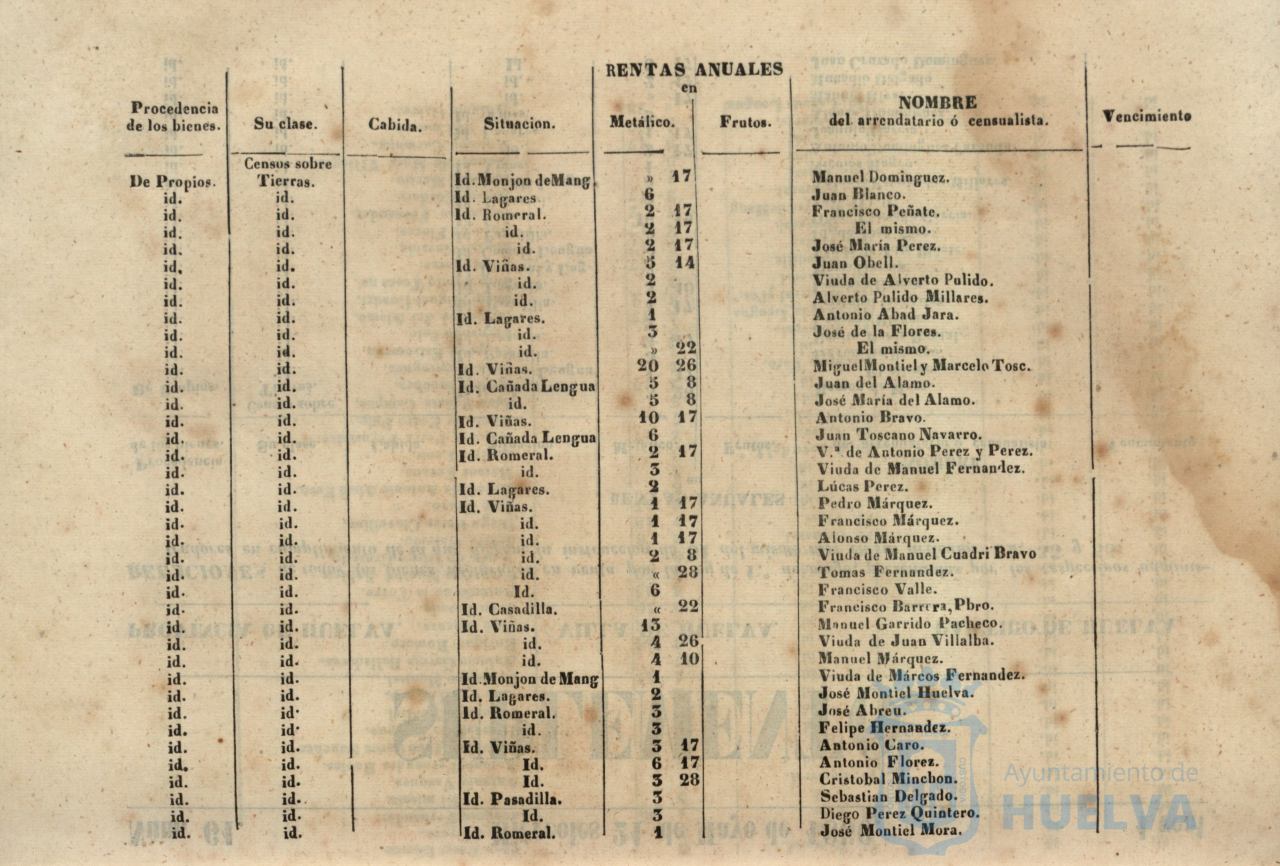 RENTAS ANUALES
en
Procedencia de los bienes. Su clase. Cabida. Situacion. Metálico. Frutos. NOMBRE del arrendatario ó censualista. Vencimiento
Censos sobre
De Propios. Tierras. Id. Monjon de Mang. » 17 Manuel Dominguez.
id. id. Id. Lagares 6 Juan Blanco.
id. id. Id. Romeral. 2 17 Francisco Peñate.
id. id. id. 2 17 El mismo.
id. id. id. 2 17 José María Perez.
id. id. Id. Viñas. 5 14 Juan Obell.
id. id. id. 2 Viuda de Alverto Pulido.
id. id. id. 2 Alverto Pulido Millares.
id. id. Id. Lagares. 1 Antonio Abad Jara.
id. id. id. 3 José de la Flores.
id. id. id. » 22 El mismo.
id. id. Id. Viñas. 20 26 Miguel Montiel y Marcelo Tosc.
id. id. Id. Cañada Lengua 5 8 Juan del Alamo.
id. id. id. 5 8 José María del Alamo.
id. id. Id. Viñas. 10 17 Antonio Bravo.
id. id. Id. Cañada Lengua 6 Juan Toscano Navarro.
id. id. Id. Romeral. 2 17 V.ª de Antonio Perez y Perez.
id. id. id. 3 Viuda de Manuel Fernandez.
id. id. Id. Lagares. 2 Lúcas Perez.
id. id. Id. Viñas. 1 17 Pedro Márquez.
id. id. id. 1 17 Francisco Márquez.
id. id. id. 1 17 Alonso Márquez.
id. id. id. 2 8 Viuda de Manuel Cuadri Bravo
id. id. id. « 28 Tomas Fernandez.
id. id. Id. 6 Francisco Valle.
id. id. Id. Casadilla. « 22 Francisco Barrera, Pbro.
id. id. Id. Viñas. 13 Manuel Garrido Pacheco.
id. id. id. 4 26 Viuda de Juan Villalba.
id. id. id. 4 10 Manuel Márquez.
id. id. Id. Monjon de Mang 1 Viuda de Márcos Fernandez.
id. id. Id. Lagares. 2 José Montiel Huelva.
id. id. Id. Romeral. 3 José Abreu.
id. id. id. 3 Felipe Hernandez.
id. id. Id. Viñas. 3 17 Antonio Caro.
id. id. Id. 6 17 Antonio Florez.
id. id. Id. 3 28 Cristobal Minchon.
id. id. Id. Pasadilla. 3 Sebastian Delgado.
id. id. Id. 3 Diego Perez Quintero.
id. id. Id. Romeral. 1 José Montiel Mora.
Ayuntamiento de
HUELVA